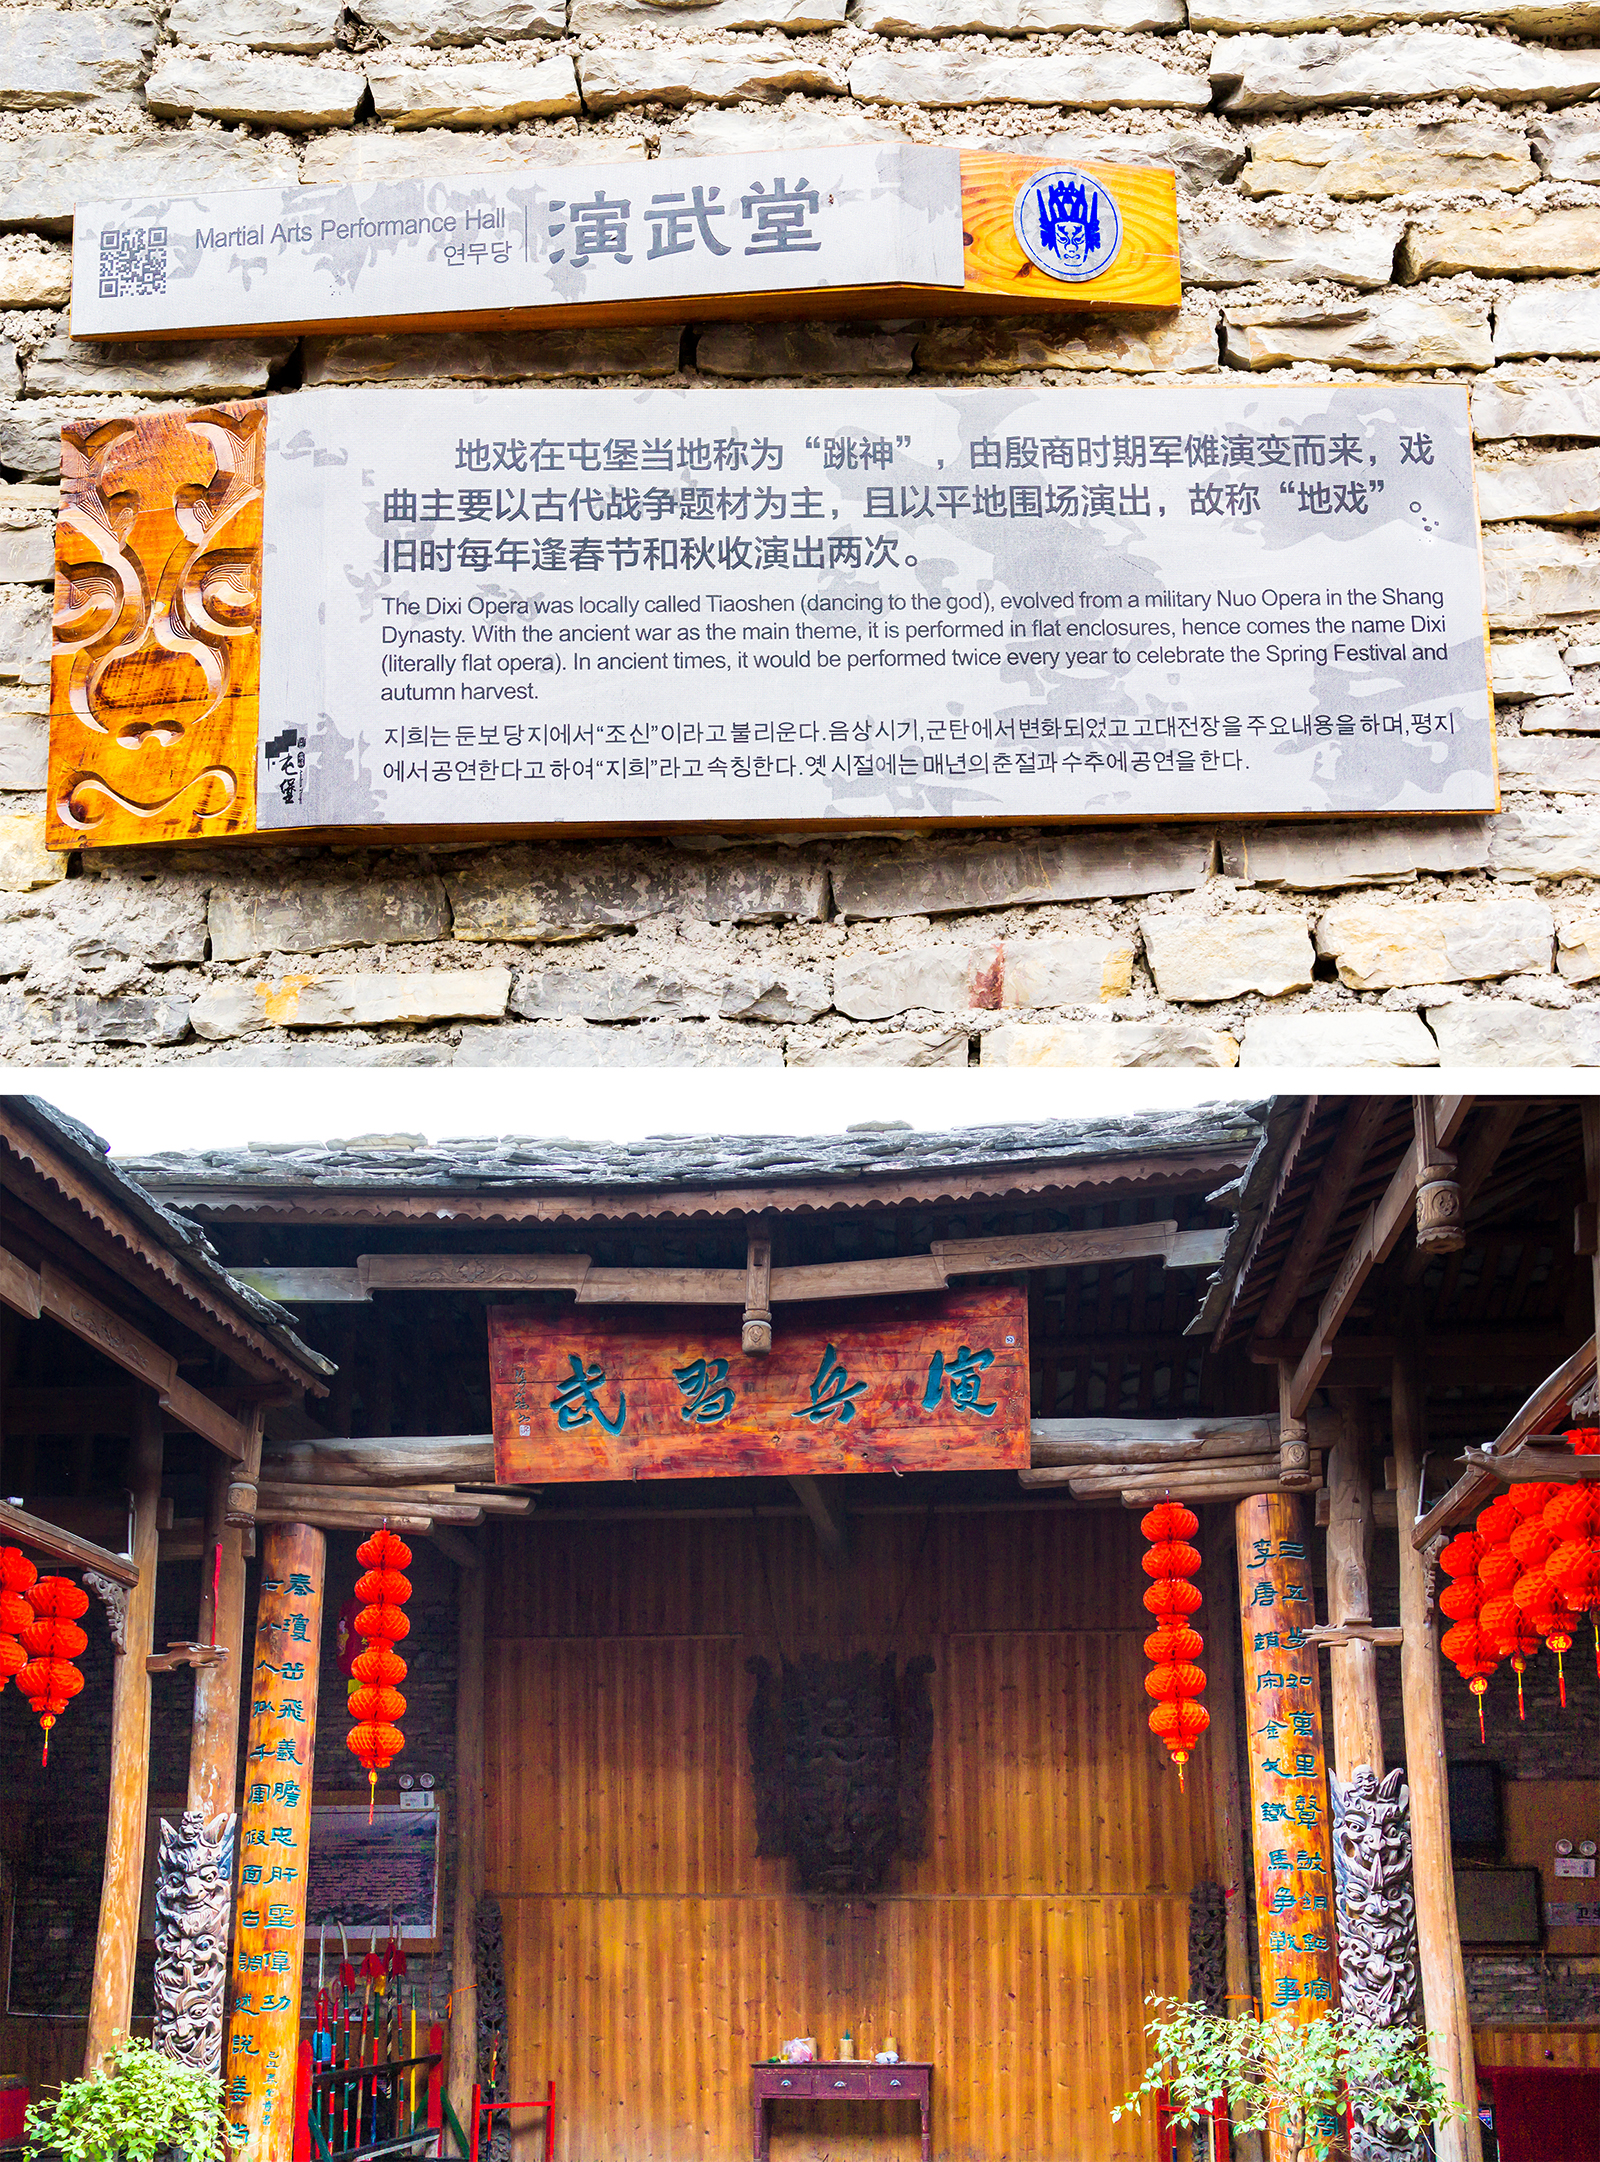 Martial Arts Performance Hall
연무당
演武堂
地戏在屯堡当地称为“跳神”，由殷商时期军傩演变而来，戏
曲主要以古代战争题材为主，且以平地围场演出，故称“地戏”。
旧时每年逢春节和秋收演出两次。
The Dixi Opera was locally called Tiaoshen (dancing to the god), evolved from a military Nuo Opera in the Shang
Dynasty. With the ancient war as the main theme, it is performed in flat enclosures, hence comes the name Dixi
(literally flat opera). In ancient times, it would be performed twice every year to celebrate the Spring Festival and
autumn harvest.
지희는 둔보당지에서“조신”이라고 불리운다.음상시기,군탄에서변화되었고 고대전장을 주요내용을 하며,평지
에서공연한다고 하여“지희”라고 속칭한다.옛 시절에는 매년의 춘절과 수추에 공연을 한다.
屯堡
演兵習武
三五步如萬里聲鼓銅鉦演
李唐趙宋金戈鐵馬爭戰事
秦瓊岳飛義膽忠肝聖偉功
七八人擬千軍假面古調述說姜
福
福